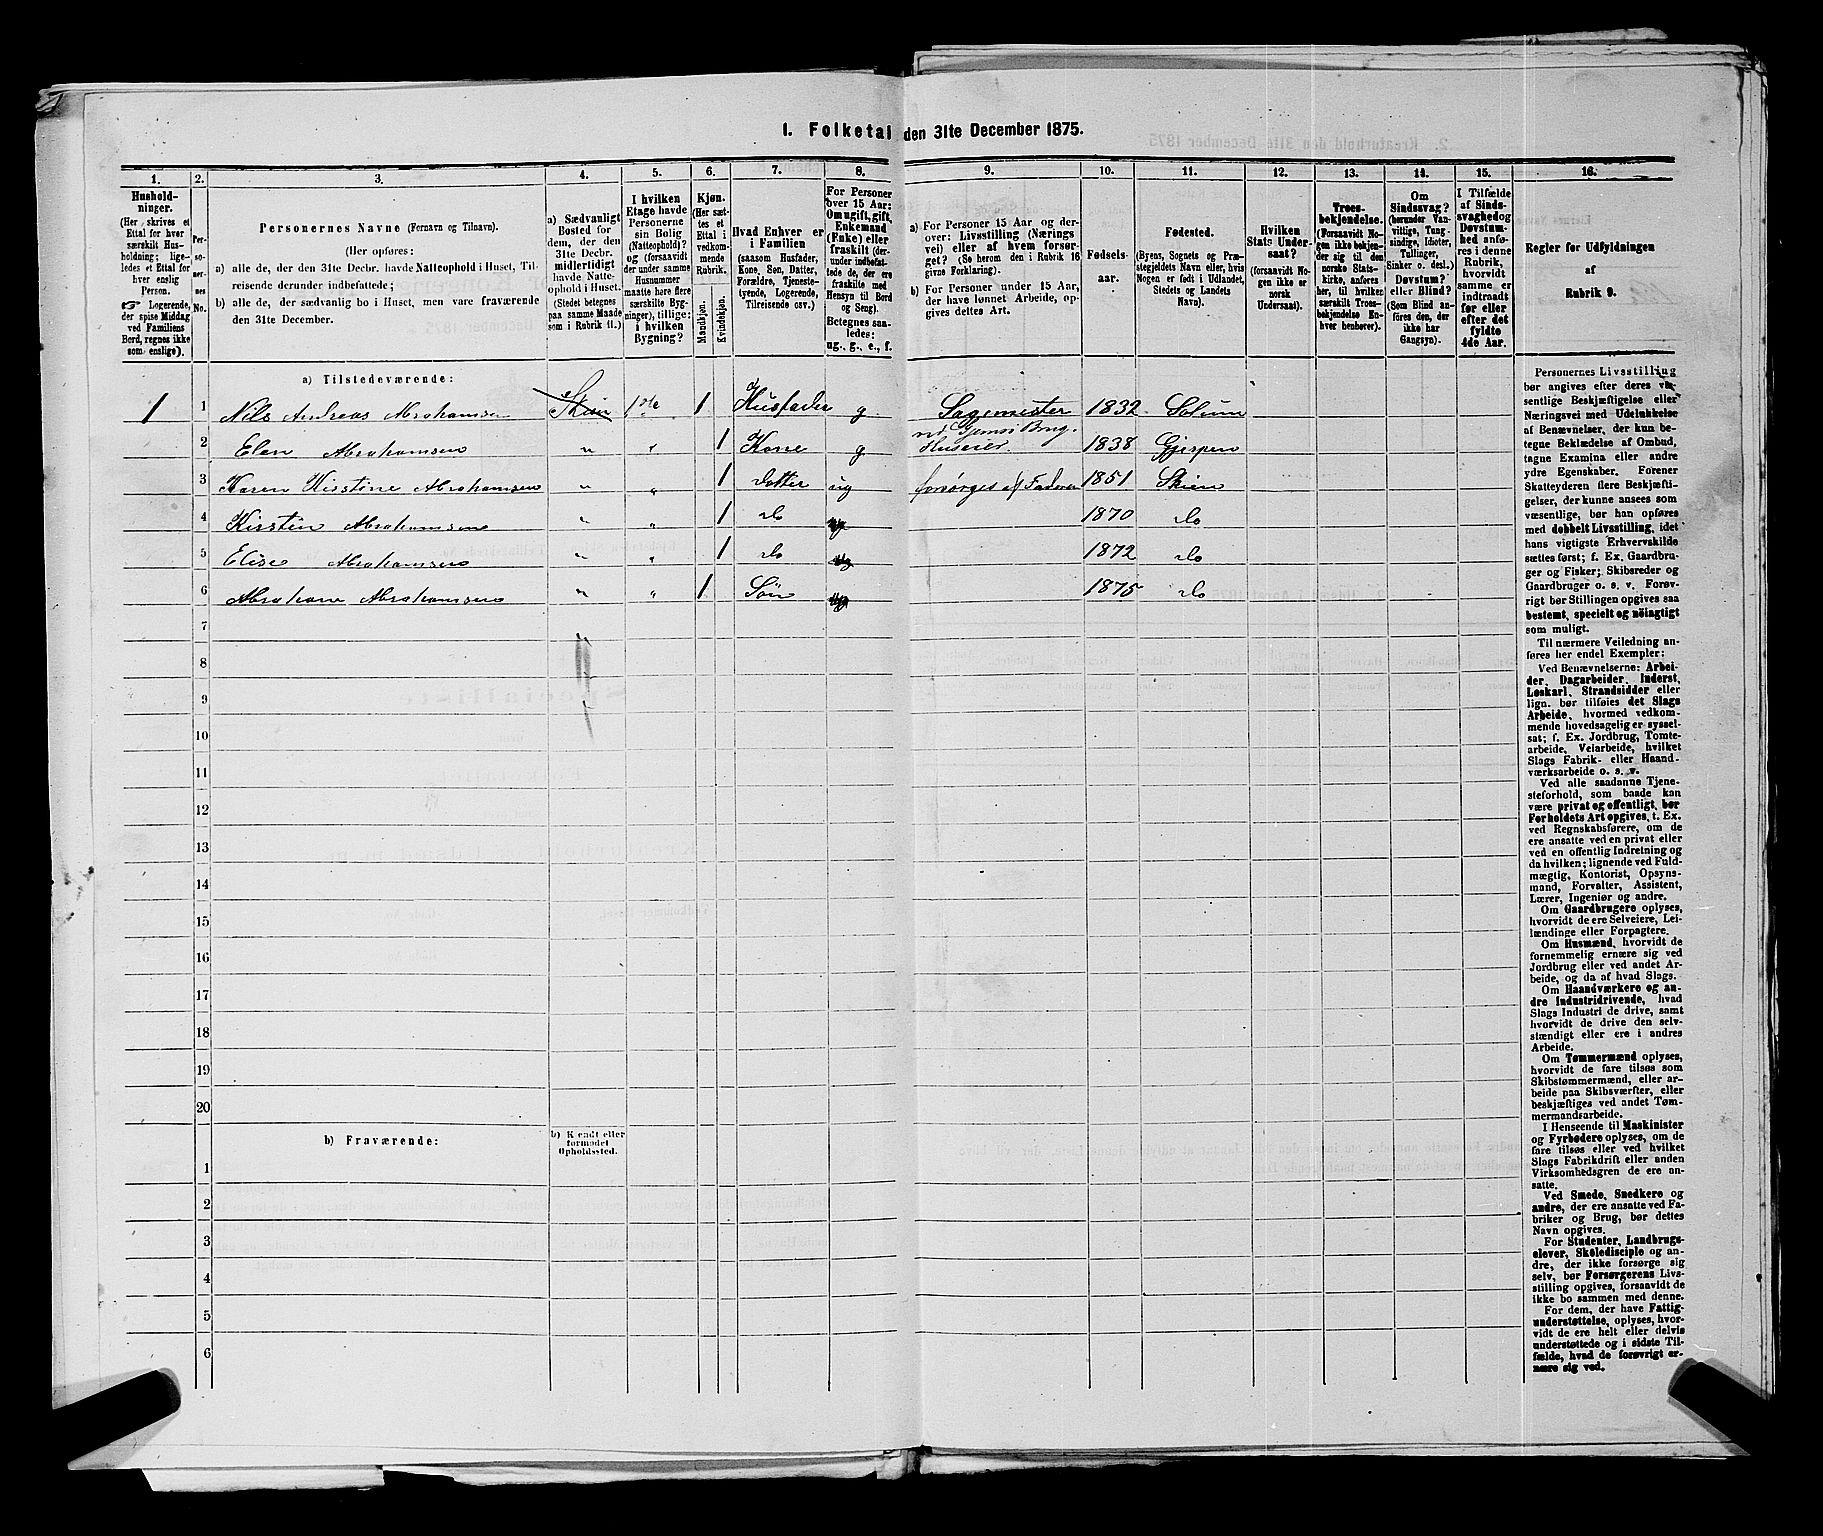 1. Folketal den 31te December 1875.
1. 2. 3. 4. 5. 6. 7. 8. 9. 10. 11. 12. 13. 14. 15. 16.
Hushold-
ninger.
(Her skrives et
Ettal for hver
særskilt Hus-
holdning; lige-
ledes et Ettal for
hver enslig
Person.
☞ Logerende,
der spise Middag
ved Familiens
Bord, regnes ikke
som enslige).
Per-
so-
ner-
nes
No.
Personernes Navne (Fornavn og Tilnavn).
(Her opføres:
a) alle de, der den 31te Decbr. havde Natteophold i Huset, Til-
reisende derunder indbefattede;
b) alle de, der sædvanlig bo i Huset, men vare fraværende
den 31te December.
a) Sædvanligt
Bosted for
dem, der den
31te Decbr.
midlertidigt
havde Natte-
ophold i Huset.
(Stedet betegnes
paa samme Maade
som i Rubrik 11.)
I hvilken
Etage havde
Personerne
sin Bolig
(Natteophold)?
og (forsaavidt
der under samme
Husnummer
maatte høre flere
særskilte Byg-
ninger), tillige:
i hvilken
Bygning?
Kjøn.
(Her sæt-
tes et
Ettal i
vedkom-
mende
Rubrik.
Mandkjøn.
Kvindekjøn.
Hvad Enhver er
i Familien
(saasom Husfader,
Kone, Søn, Datter,
Forældre, Tjeneste-
tyende, Logerende,
Tilreisende osv.)
For Personer
over 15 Aar:
Om ugift, gift,
Enkemand
(Enke) eller
fraskilt (der-
under indbefat-
tede de, der ere
fraskilte med
Hensyn til Bord
og Seng).
Betegnes saa-
ledes:
ug., g., e., f.
a) For Personer 15 Aar og der-
over: Livsstilling (Nærings
vei) eller af hvem forsør-
get? (Se herom den i Rubrik 16
givne Forklaring).
b) For Personer under 15 Aar,
der have lønnet Arbeide, op-
gives dettes Art.
Fødsels-
aar.
Fødested.
(Byens, Sognets og Præ-
stegjeldets Navn eller, hvis
Nogen er født i Udlandet,
Stedets og Landets
Navn).
Hvilken
Stats Under-
saat?
(forsaavidt No-
gen ikke er
norsk
Undersaat).
Troes-
bekjendelse.
(Forsaavidt No-
gen ikke bekjen-
der sig til den
norske Stats-
kirke, anføres
her, til hvilken
særskilt Troes-
bekjendelse En-
hver henhører).
Om
Sindssvag?
(herunder Van-
vittige, Tung-
sindige, Idioter,
Tullinger,
Sinker o. desl.)
Døvstum?
eller Blind?
(Som Blind an-
føres den, der
ikke har
Gangsyn).
I Tilfælde
af Sinds-
svaghed og
Døvstum-
hed anfø-
res i denne
Rubrik,
hvorvidt
samme er
indtraadt
før eller
efter det
fyldte
4de Aar.
Regler for Udfyldningen
af
Rubrik 9.
a) Tilstedeværende:
1 1 Nils Andreas Abrahamsen Skien 1ste 1 Husfader g Sagmester 1832 Solum
ved Gjemsø Brug.
2 Elen Abrahamsen " " 1 Kone g Huseier. 1838 Gjerpen
3 Karen Kirstine Abrahamsen " " 1 datter ug forsørges af Faderen 1851 Skien
4 Kirstin Abrahamsen " " 1 do ug 1870 do
5 Elise Abrahamsen " " 1 do ug 1872 do
6 Abraham Abrahamsen " " 1 Søn ug 1875 do
7
8
9
10
11
12
13
14
15
16
17
18
19
20
b) Fraværende:
b) Kjendt eller
formodet
Opholdssted.
1
2
3
4
5
6
Personernes Livsstilling
bør angives efter deres væ-
sentlige Beskjæftigelse eller
Næringsvei med Udelukkelse
af Benævnelser, der kun be-
tegne Beklædelse af Ombud,
tagne Examina eller andre
ydre Egenskaber. Forener
Skatteyderen flere Beskjæfti-
gelser, der kunne ansees som
væsentlige, bør han opføres
med dobbelt Livsstilling, idet
hans vigtigste Erhvervskilde
sættes først; f. Ex. Gaardbru-
ger og Fisker; Skibsreder og
Gaardbruger o. s. v. Forøv-
rigt bør Stillingen opgives saa
bestemt, specielt og nøiagtigt
som muligt.
Til nærmere Veiledning an-
føres her endel Exempler:
Ved Benævnelserne: Arbei-
der, Dagarbeider, Inderst,
Løskarl, Strandsidder eller
lign. bør tilføies det Slags
Arbeide, hvormed vedkom-
mende hovedsagelig er syssel-
sat; f. Ex. Jordbrug, Tomte-
arbeide, Veiarbeide, hvilket
Slags Fabrik- eller Haand-
værksarbeide o. s. v.
Ved alle saadanne Tjene-
steforhold, som baade kan
være privat og offentligt, bør
Forholdets Art opgives, t. Ex.
ved Regnskabsførere, om de
ere ansatte ved en privat eller
ved en offentlig Indretning og
da hvilken; lignende ved Fuld-
mægtig, Kontorist, Opsyns-
mand, Forvalter, Assistent,
Lærer, Ingeniør og andre.
Om Gaardbrugere oplyses,
hvorvidt de ere Selveiere, Lei-
lændinge eller Forpagtere.
Om Husmænd, hvorvidt de
fornemmelig ernære sig ved
Jordbrug eller ved andet Ar-
beide, og da af hvad Slags.
Om Haandværkere og an-
dre Industridrivende, hvad
Slags Industri de drive, samt
hvorvidt de drive den selv-
stændigt eller ere i andres
Arbeide.
Om Tømmermænd oplyses,
hvorvidt de fare tilsøs som
Skibstømmermænd, eller ar-
beide paa Skibsværfter, eller
beskjæftiges ved andet Tøm-
mermandsarbeide.
I Henseende til Maskinister
og Fyrbødere oplyses, om de
fare tilsøs eller ved hvilket
Slags Fabrikdrift eller anden
Virksomhedsgren de ere an-
satte.
Ved Smede, Snedkere og
andre, der ere ansatte ved Fa-
briker og Brug, bør dettes
Navn opgives.
For Studenter, Landbrugs-
elever, Skoledisciple og an-
dre, der ikke forsørge sig
selv, bør Forsørgerens Livs-
stilling opgives, forsaavidt de
ikke bo sammen med denne.
For dem, der have Fattig-
understøttelse, oplyses, hvor-
vidt de ere helt eller delvis
understøttede og i sidste Til-
fælde, hvad de forøvrigt er-
nære sig ved.